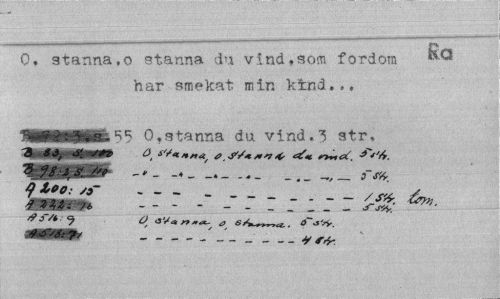 O. stanna,o stanna du vind,som fordom Ra
har smekat min kind...
B 92:3,s. 55 O,stanna du vind. 3 str.
B 83, s. 100 O, stanna, o, stanna du vind. 5 str.
B 98:2, s. 110 -"- -"- -"- 5 str.
A 200:15 - - - - - - - - 1 str. tom.
A 222:16 - - - - - - - - 5 str.
A 516:9 O, stanna, o, stanna. 5 str.
A 513:71 - - - - - - - - - 4 str.